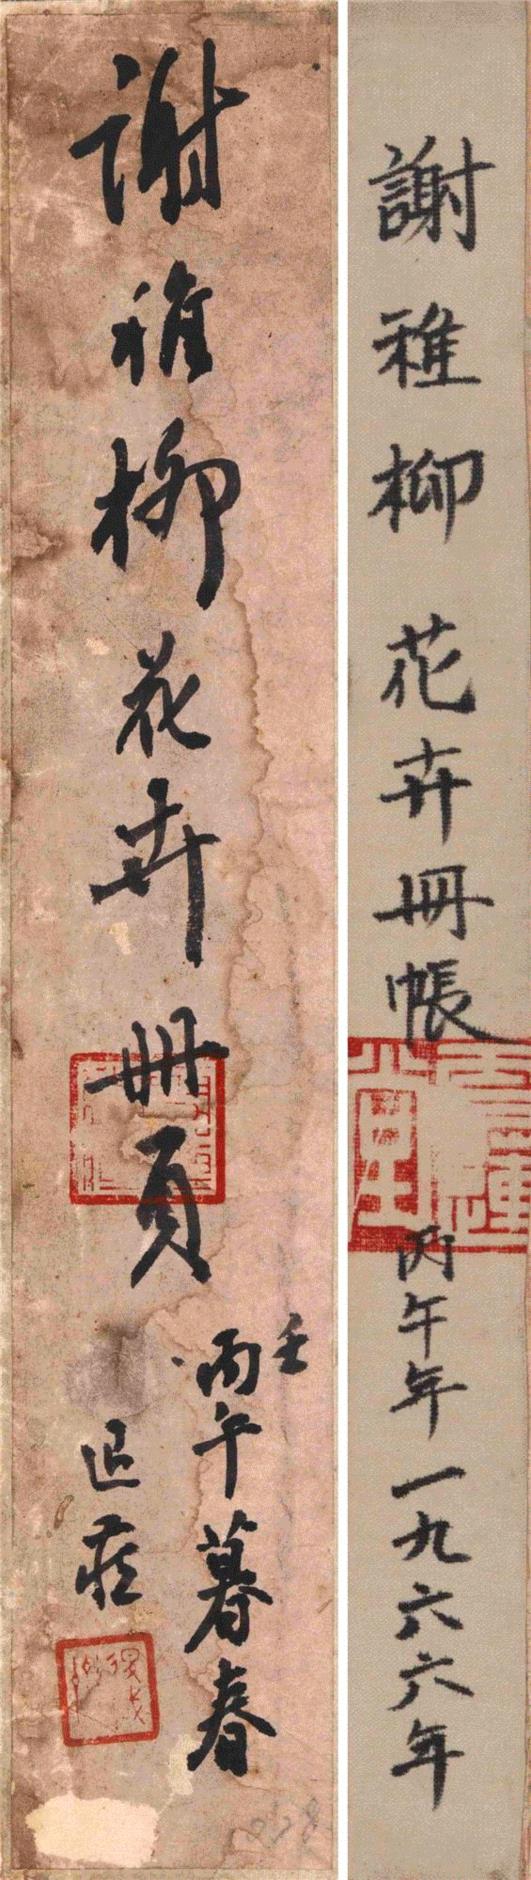 謝稚柳花卉冊頁
壬
丙午暮春
謝稚柳花卉冊帳
丙午年一九六六年